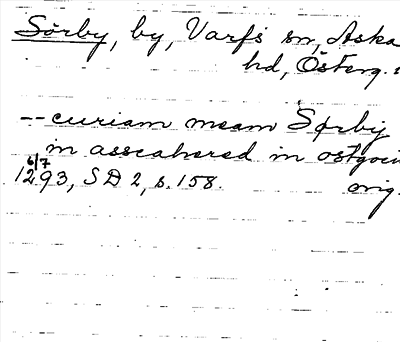 Sörby, by, Varfs sn, Aska
hd, Österg.
-- curiam meam Sørby
in asscahered in ostgoci
6/7
1293, SD 2, s. 158. orig.